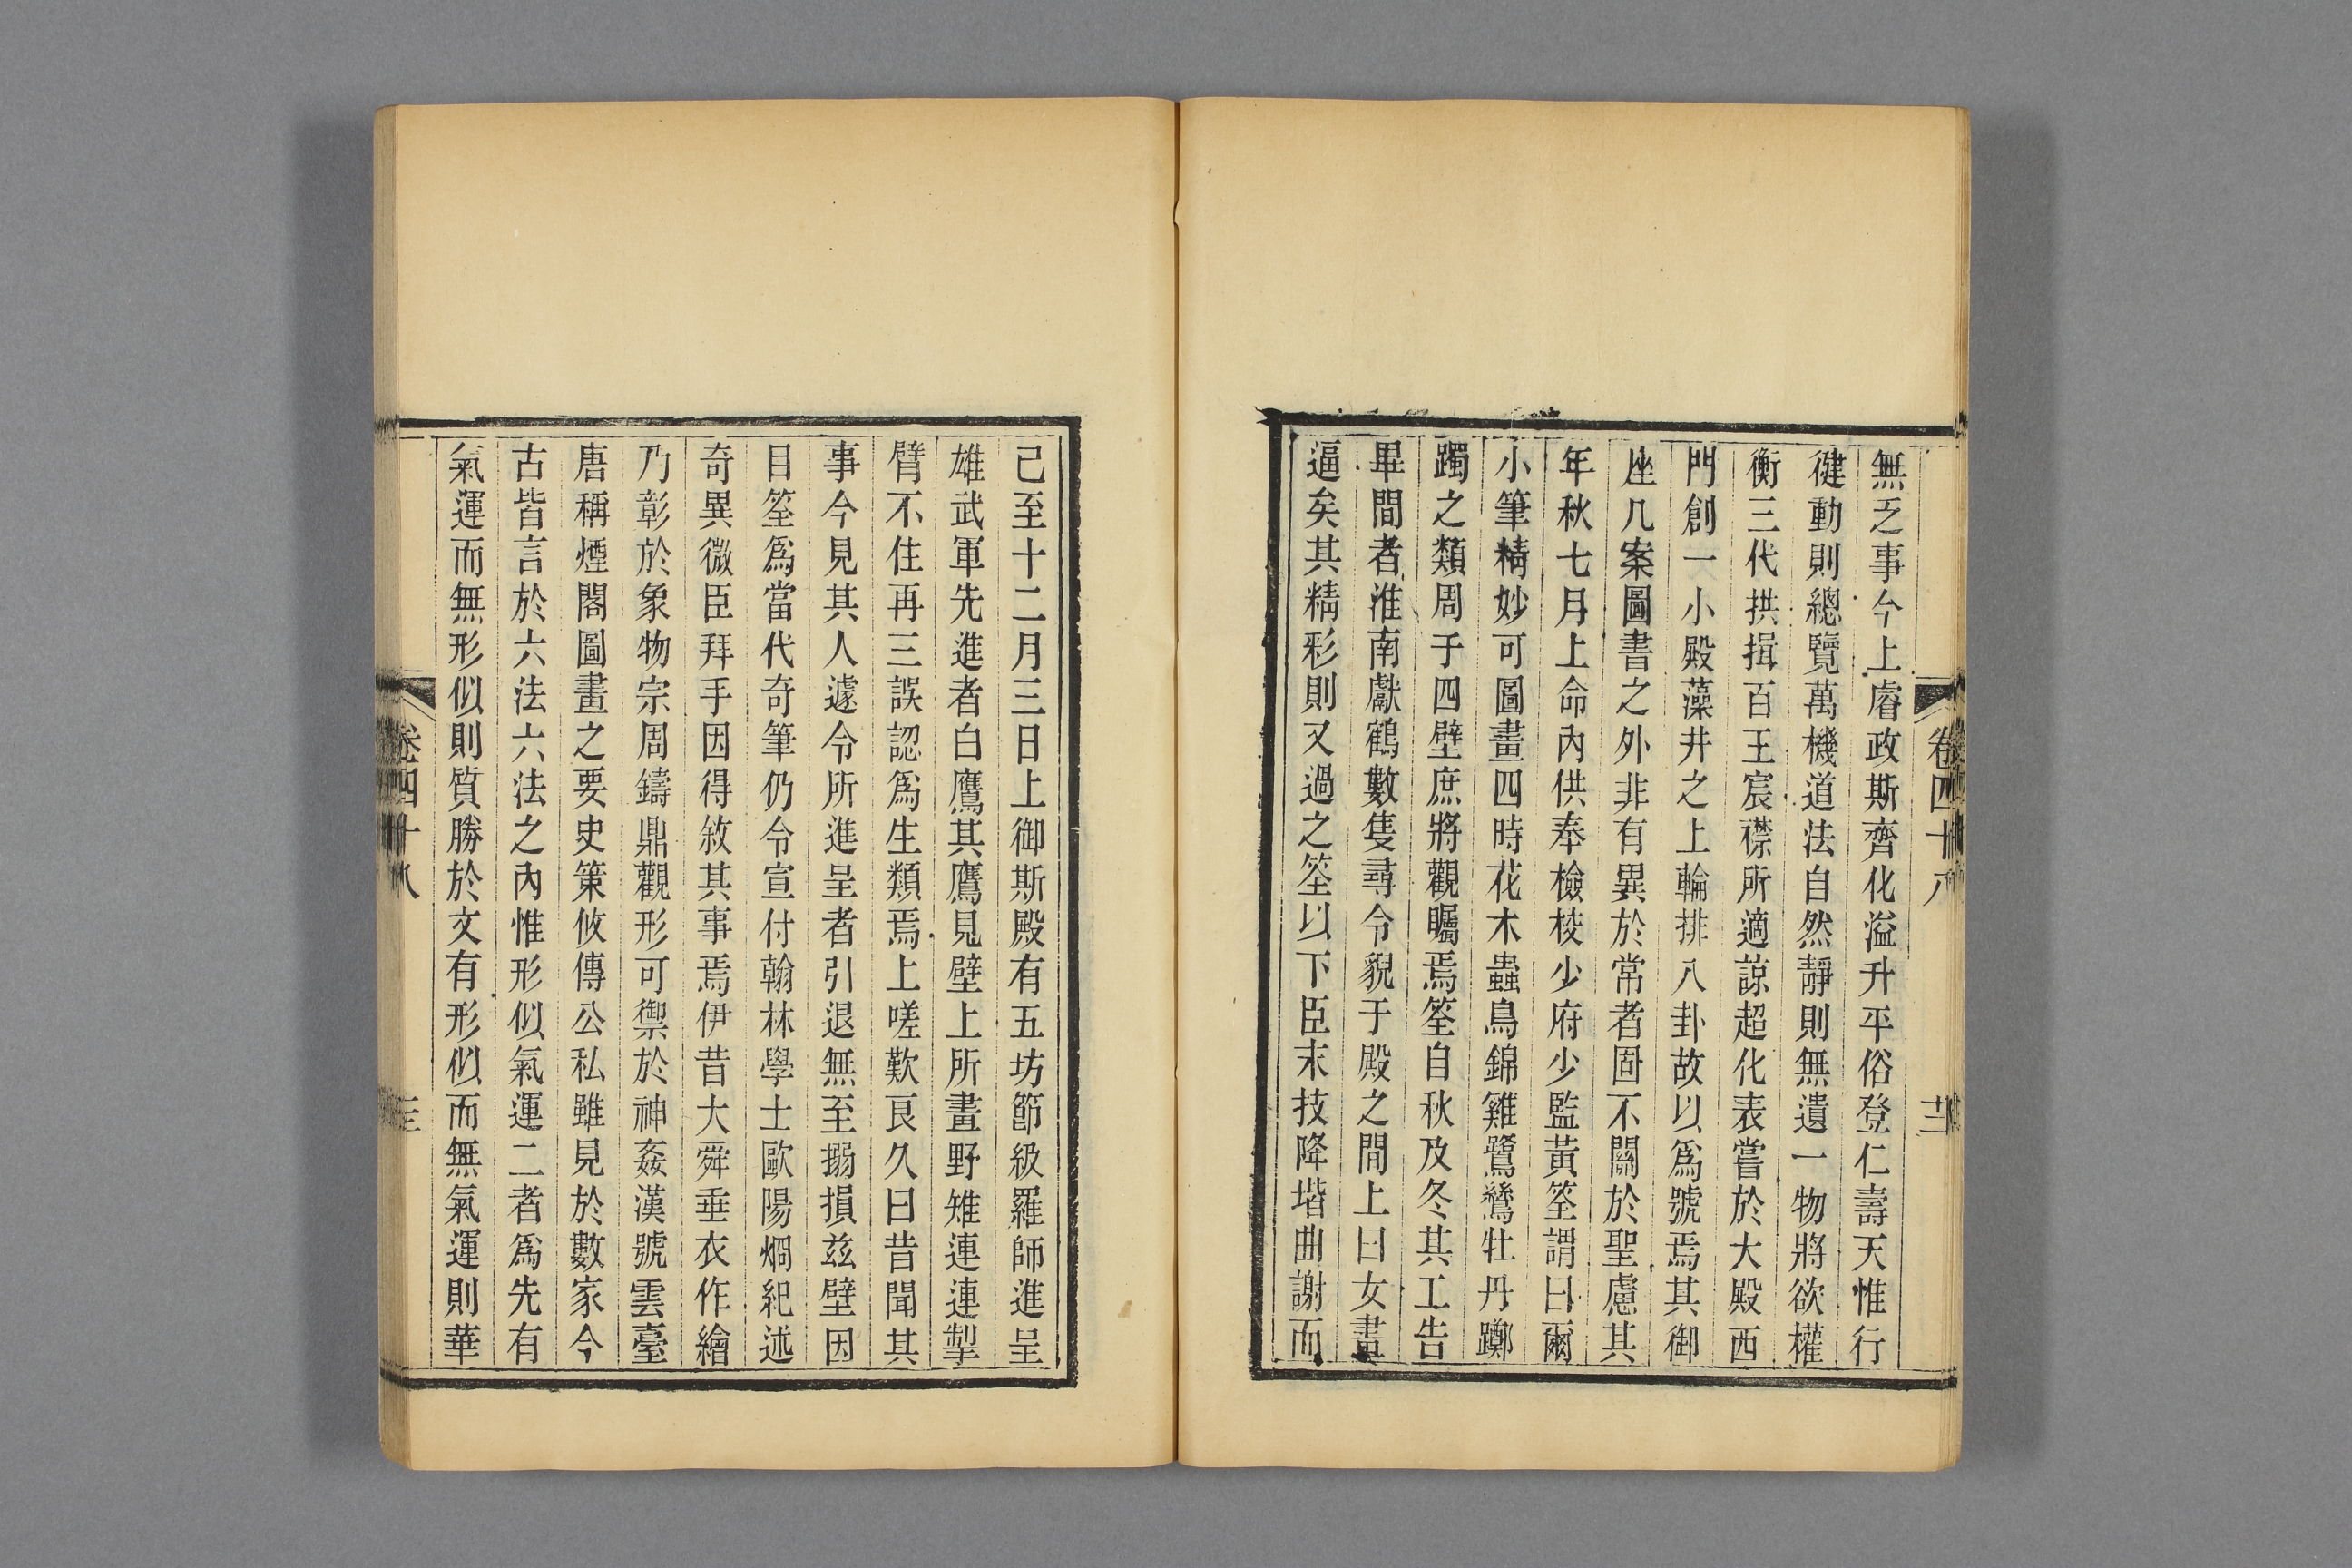 無乏事今上睿政斯齊化溢升平俗登仁壽天惟行
徤動則總覽萬機道法自然靜則無遺一物將欲權
衡三代拱揖百王宸襟所適諒超化表嘗於大殿西
門創一小殿藻井之上輪排八卦故以爲號焉其御
座几案圖書之外非有異於常者固不關於聖慮其
年秋七月上命內供奉檢校少府少監黃筌謂曰爾
小筆精妙可圖畫四時花木蟲鳥錦雞鷺鷥牡丹躑
躅之類周于四壁庶將觀矚焉筌自秋及冬其工告
畢間者淮南獻鶴數隻尋令貌于殿之間上曰女畫
逼矣其精彩則又過之筌以下臣末技降堦曲謝而
卷四十八
已至十二月三日上御斯殿有五坊節級羅師進呈
雄武軍先進者白鷹其鷹見壁上所畫野雉連連掣
臂不住再三誤認爲生類焉上嗟歎良久曰昔聞其
事今見其人遽令所進呈者引退無至搦損兹壁因
目筌爲當代奇筆仍令宣付翰林學士歐陽烱紀述
奇異微臣拜手因得敘其事焉伊昔大舜垂衣作繪
乃彰於象物宗周鑄鼎觀形可禦於神姦漢號雲臺
唐稱煙閣圖畫之要史策攸傳公私雖見於數家今
古皆言於六法六法之內惟形似氣運二者爲先有
氣運而無形似則質勝於文有形似而無氣運則華
卷四十八